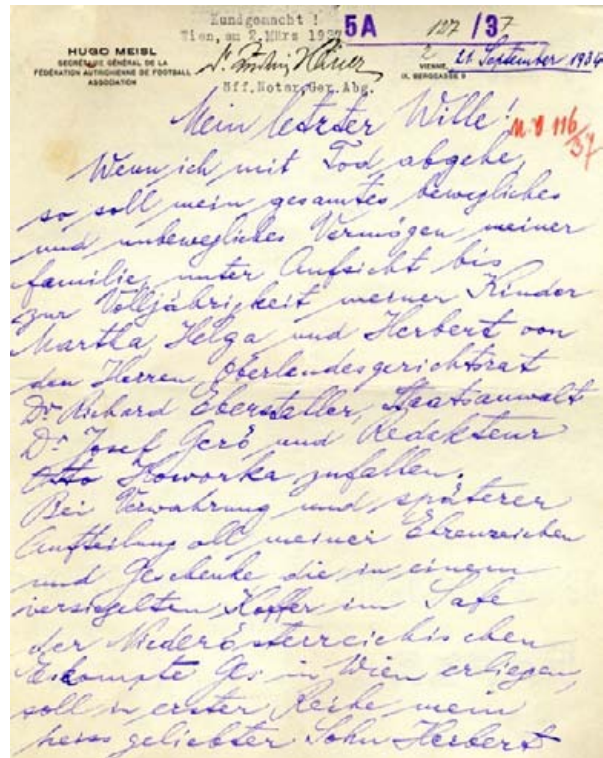 Kundgemacht !
Wien, am 2.März 1937
5A 127 /37
2
HUGO MEISL
SECRÉTAIRE GÉNÉRAL DE LA
FÉDÉRATION AUTRICHIENNE DE FOOTBALL
ASSOCIATION
VIENNE, 21. September 1934
IX. BERGGASSE 9
Öff.Notar.Ger.Abg.
Mein letzter Wille!
116/37
Wenn ich mit Tod abgehe,
so soll mein gesamtes bewegliches
und unbewegliches Vermögen meiner
Familie, unter Aufsicht bis
zur Volljährigkeit meiner Kinder
Martha, Helga und Herbert von
den Herren Oberlandesgerichtsrat
Dr Richard Eberstaller, Staatsanwalt
Dr Josef Gerö und Redakteur
Otto Howorka zufallen.
Bei Verwahrung und späterer
Aufteilung all meiner Ehrenzeichen
und Geschenke die in einem
versiegelten Koffer im Safe
der Niederösterreichischen
Eskompte Ges. in Wien erliegen,
soll in erster Reihe mein
heiss geliebter Sohn Herbert